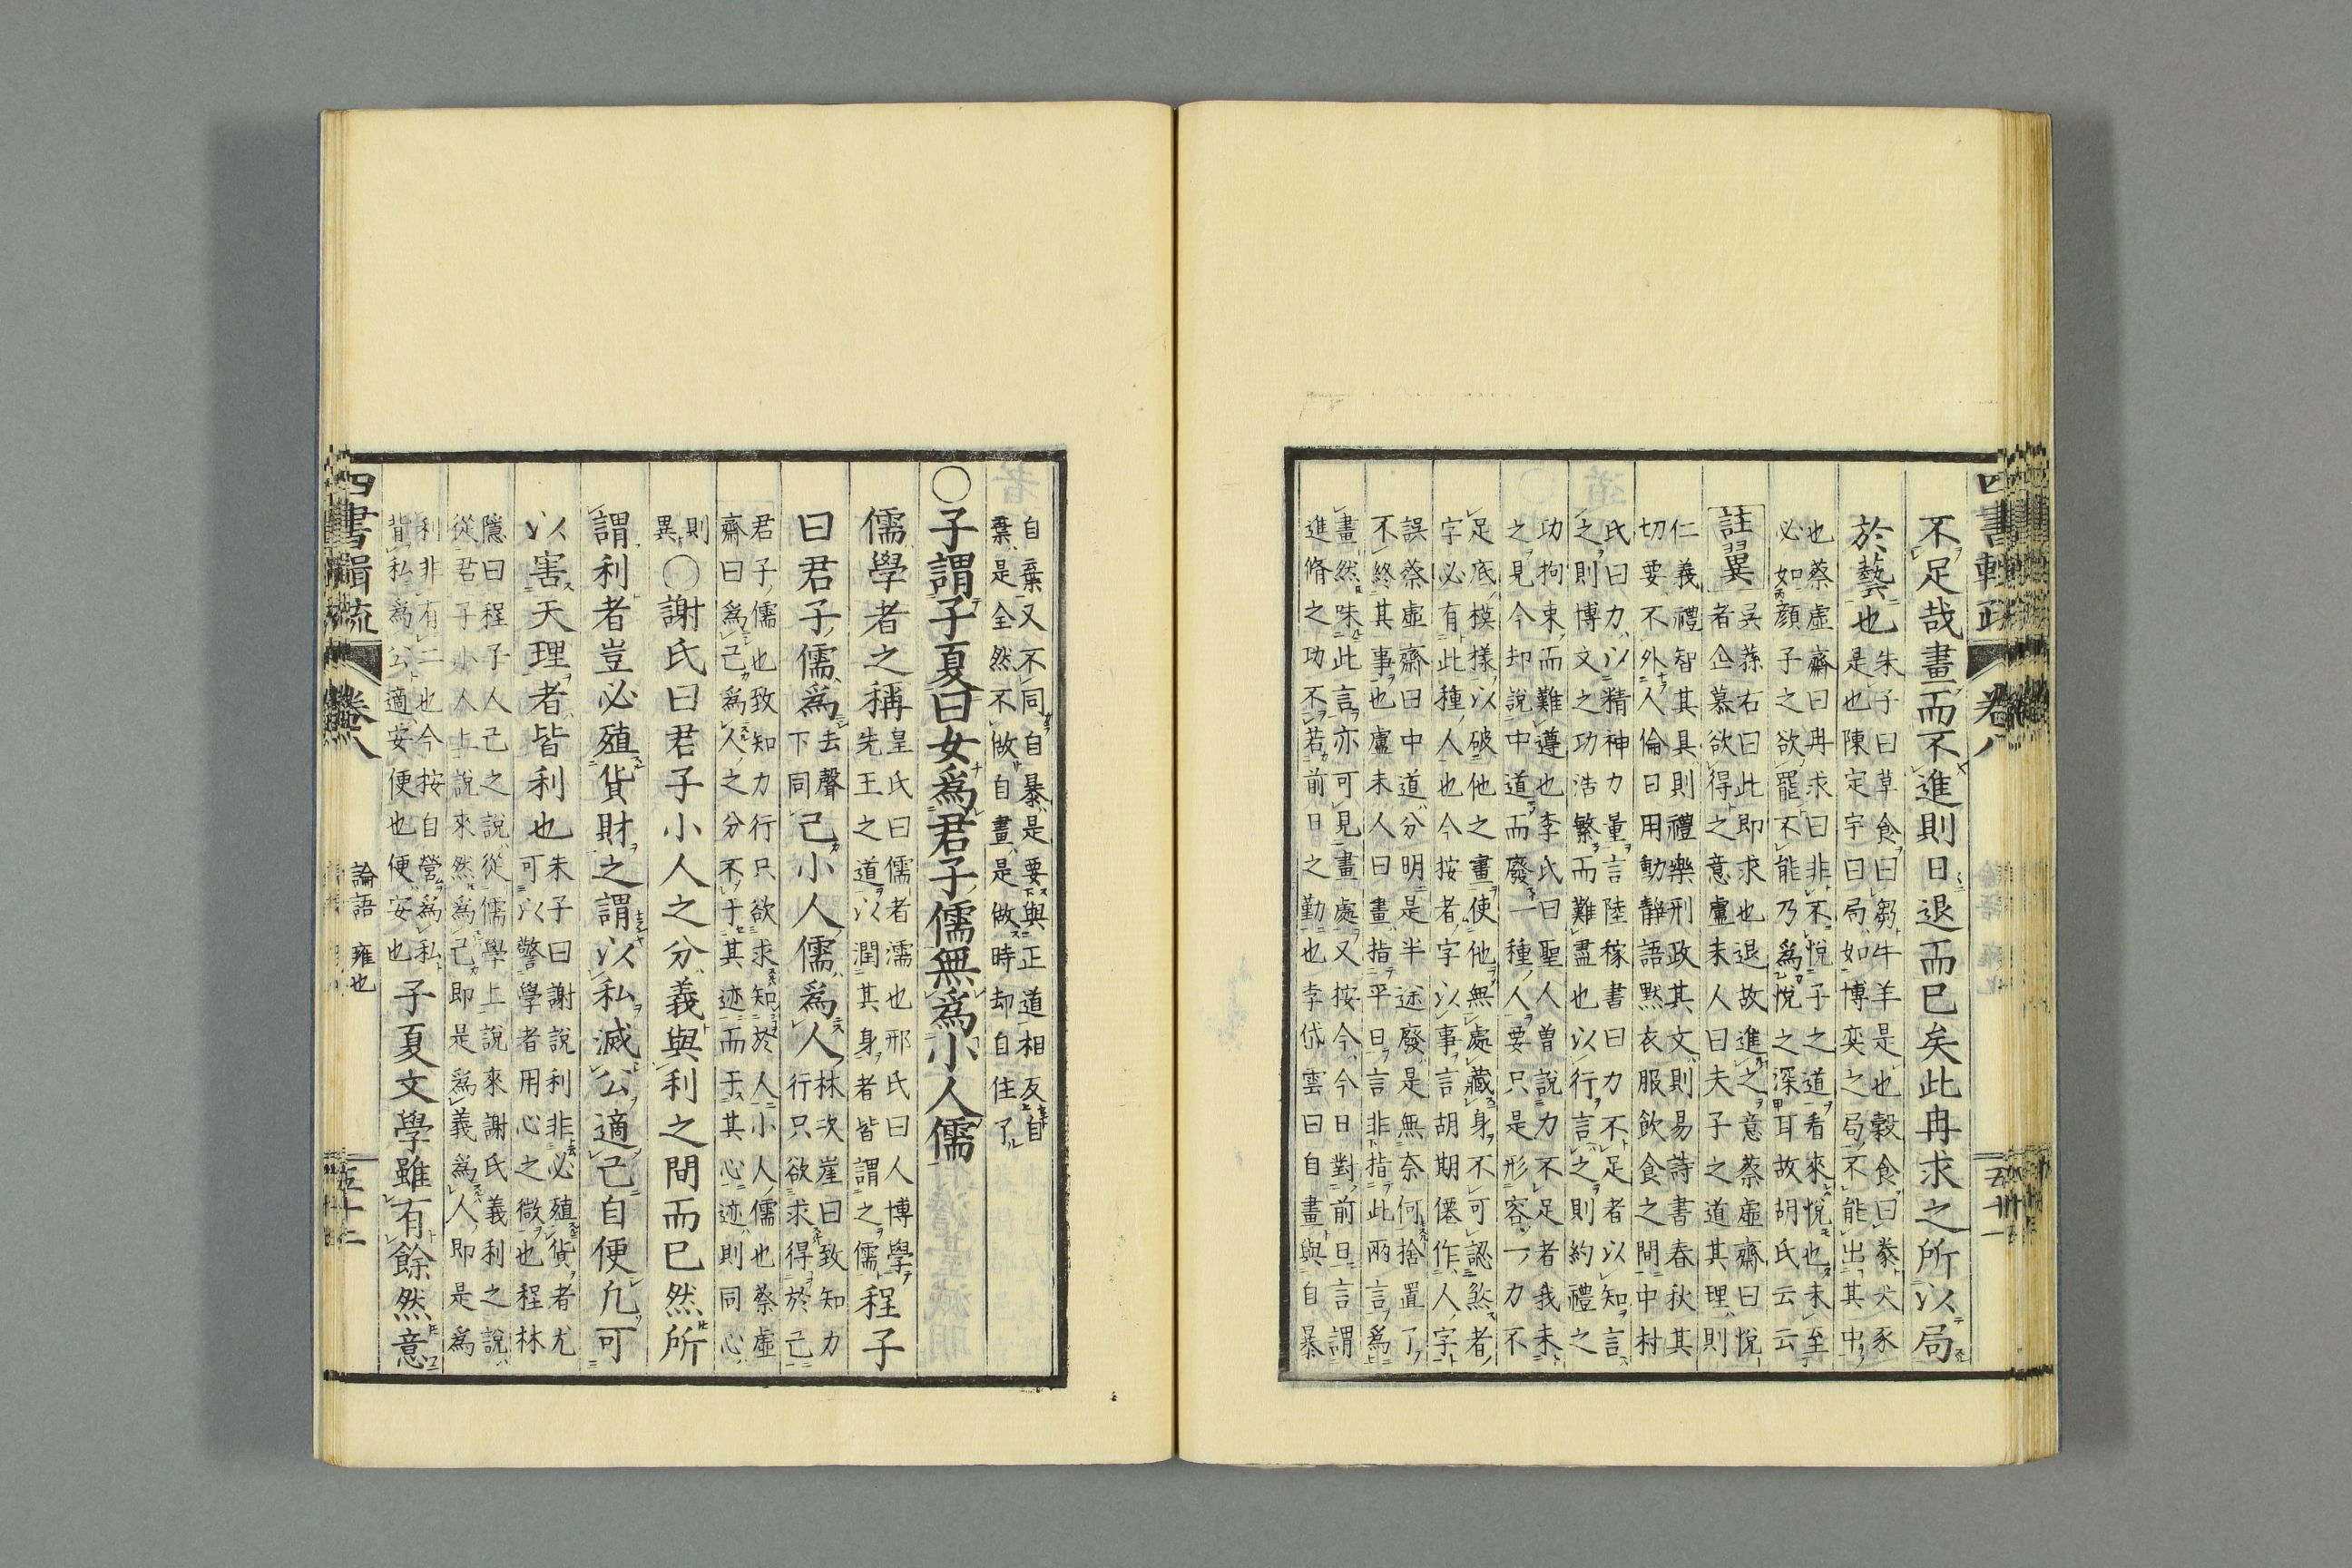 不足哉畫而不進則日退而已矣此冉求之所以局
於藝也
朱子曰草食曰芻牛羊是也穀食曰豢犬豕
是也陳定宇曰局如博奕之局不能出其中
也蔡虛齋曰冉求曰非不悅子之道看來悅也未至
必如顔子之欲罷不能乃爲悅之深耳故胡氏云云
註翼
吳蓀右曰此即求也退故進之意蔡虛齋曰悅
者企慕欲得之意盧未人曰夫子之道其理則
仁義禮智其具則禮樂刑政其文則易詩書春秋其
切要不外人倫日用動靜語默衣服飮食之間中村
氏曰力以精神力量言陸稼書曰力不足者以知言
之則博文之功浩繁而難盡也以行言之則約禮之
功拘束而難遵也李氏曰聖人曽說力不足者我未
之見今却說中道而廢一種人要只是形容一力不
足底模樣以破他之畫使他無處藏身不可認煞者
字必有此種人也今按者字以事言胡期僊作人字
誤蔡虛齋曰中道分明是半途廢是無奈何捨置了
不終其事也盧未人曰畫指平日言非指此兩言爲
畫然味此言亦可見畫處又按今今日對前日言謂
進脩之功不若前日之勤也李岱雲曰自畫與自暴
四書輯疏 卷八
五十一
自棄又不同自暴是要與正道相反自
棄是全然不做自畫是做時却自住了
○子謂子夏曰女爲君子儒無爲小人儒
儒學者之稱
皇氏曰儒者濡也邢氏曰人博學
先王之道以潤其身者皆謂之儒
程子
曰君子儒爲
去聲
下同
己小人儒爲人
林次崖曰致知力
行只欲求得於己
君子儒也致知力行只欲求知於人小人儒也蔡虛
齋曰爲己爲人之分不于其迹而于其心迹則同心
則
異
○謝氏曰君子小人之分義與利之間而已然所
謂利者豈必殖貨財之謂以私滅公適己自便凡可
以害天理者皆利也
朱子曰謝說利非必殖貨者尤
可以警學者用心之微也程林
隱曰程子人己之說從儒學上說來謝氏義利之說
從君子小人上說來然爲己即是爲義爲人即是爲
利非有二也今按自營爲私
背私爲公適安便也便安也
子夏文學雖有餘然意
四書輯疏 卷八
論語 雍也
五十二